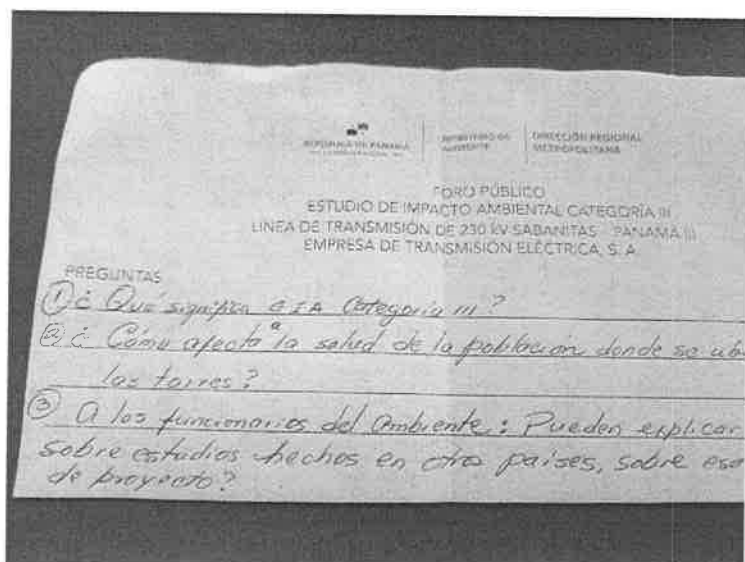 REPÚBLICA DE PANAMÁ
MINISTERIO DE
AMBIENTE
DIRECCIÓN REGIONAL
METROPOLITANA
FORO PÚBLICO
ESTUDIO DE IMPACTO AMBIENTAL CATEGORÍA III
LINEA DE TRANSMISIÓN DE 230 kV SABANITAS - PANAMÁ III
EMPRESA DE TRANSMISIÓN ELÉCTRICA, S. A.
PREGUNTAS
① ¿ Qué significa EIA Categoria III ?
② ¿ Cómo afecta a la salud de la población donde se ub
las torres ?
③ A los funcionarios del Ambiente: Pueden explicar
sobre estudios hechos en otro países, sobre ese
de proyecto?